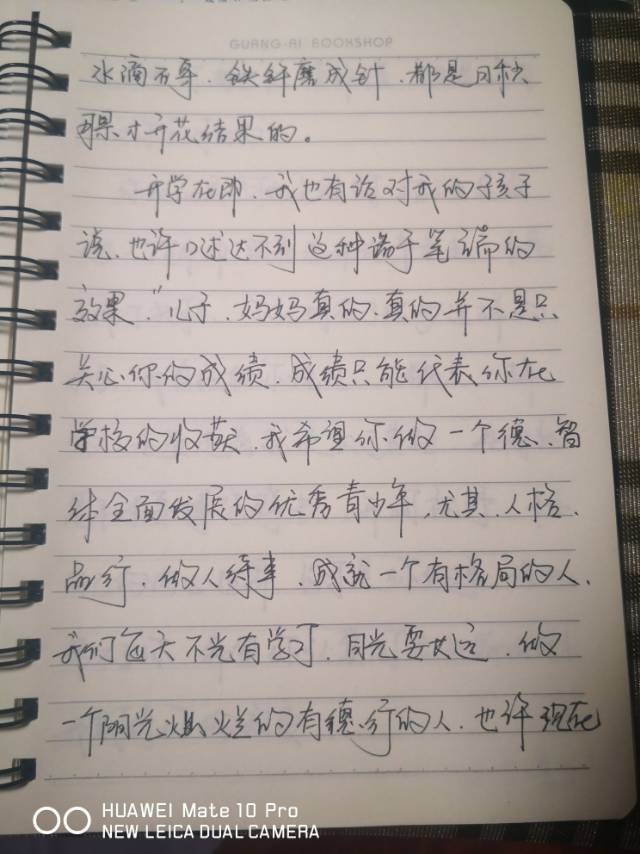 GUANG·AI BOOKSHOP
水滴石穿、铁钎磨成针、都是日积
月累才开花结果的。
开学在即、我也有话对我的孩子
说、也许口述达不到这种诺于笔端的
效果、"儿子、妈妈真的、真的并不是只
关心你的成绩、成绩只能代表你在
学校的收获、我希望你做一个德、智
体全面发展的优秀青少年、尤其、人格、
品行、做人待事、成就一个有格局的人、
我们每天不光有学习、目光要放远、做
一个阳光灿烂的有德行的人、也许现在
HUAWEI Mate 10 Pro
NEW LEICA DUAL CAMERA